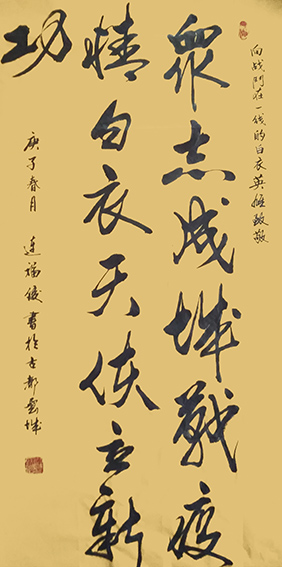 向战鬥在一线的白衣英雄致敬
眾志成城戰疫
情白衣天使立新
功
庚子春月 連瑞 書於古都 城